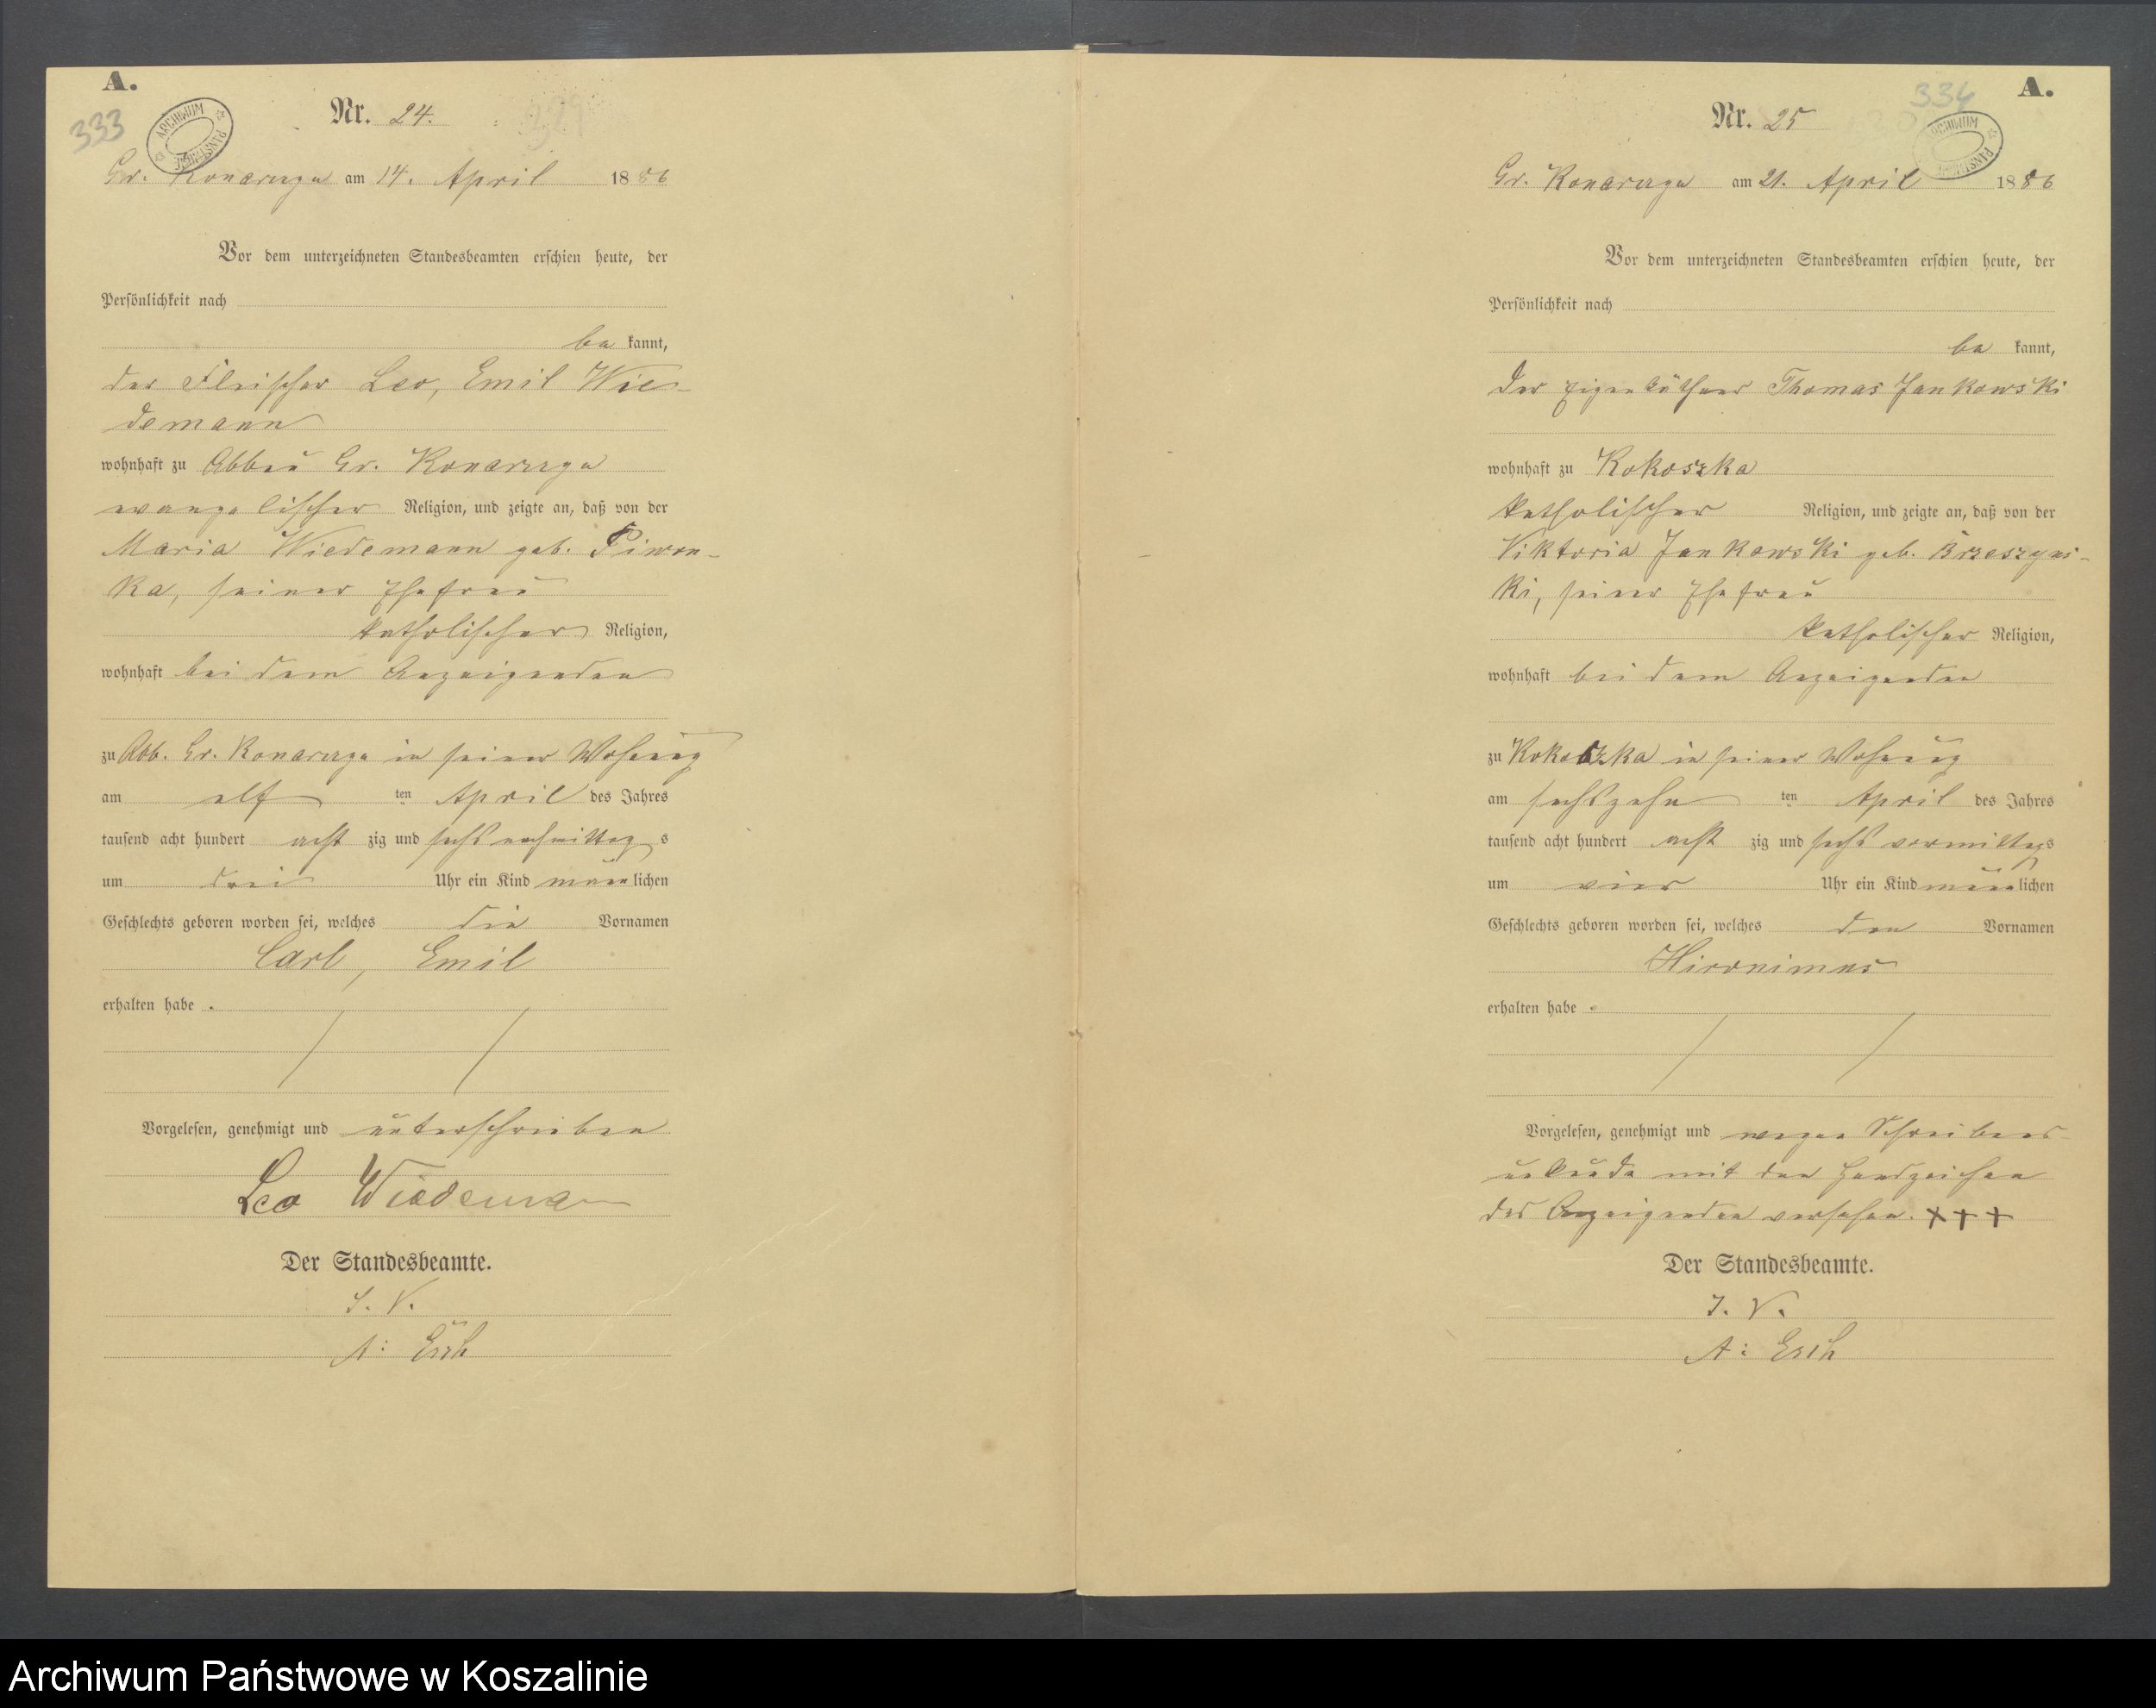 A.
333
ARCHIWUM PAŃSTWOWE
Nr. 24.
Gr. Konarczyn am 14. April 1886
Vor dem unterzeichneten Standesbeamten erschien heute, der
Persönlichkeit nach
be kannt,
der Fleischer Leo, Emil Wie-
demann
wohnhaft zu Abbau Gr. Konarczyn
evangelischer Religion, und zeigte an, daß von der
Maria Wiedemann geb. Piwon-
ka, seiner Ehefrau
katholischer Religion,
wohnhaft bei dem Anzeigenden
zu Abb. Gr. Konarczyn in seiner Wohnung
am elf ten April des Jahres
tausend acht hundert acht zig und sechs nachmittag s
um drei Uhr ein Kind männlichen
Geschlechts geboren worden sei, welches die Vornamen
Carl, Emil
erhalten habe.
Vorgelesen, genehmigt und unterschrieben
Leo Wiedemann
Der Standesbeamte.
I. V.
A:
A.
334
ARCHIWUM PAŃSTWOWE
Nr. 25
Gr. Konarczyn am 21. April 1886
Vor dem unterzeichneten Standesbeamten erschien heute, der
Persönlichkeit nach
be kannt,
Der Eigenkäthner Thomas Jankowski
wohnhaft zu Kokoszka
katholischer Religion, und zeigte an, daß von der
Viktoria Jankowski geb. Brzeszyns-
ki, seiner Ehefrau
katholischer Religion,
wohnhaft bei dem Anzeigenden
zu Kokoszka in seiner Wohnung
am sechszehn ten April des Jahres
tausend acht hundert acht zig und sechs vormittags
um vier Uhr ein Kind männlichen
Geschlechts geboren worden sei, welches den Vornamen
Hironimus
erhalten habe.
Vorgelesen, genehmigt und wegen Schreibens-
unkunde mit den Handzeichen
des Anzeigenden versehen. +++
Der Standesbeamte.
I. V.
A:
Archiwum Państwowe w Koszalinie